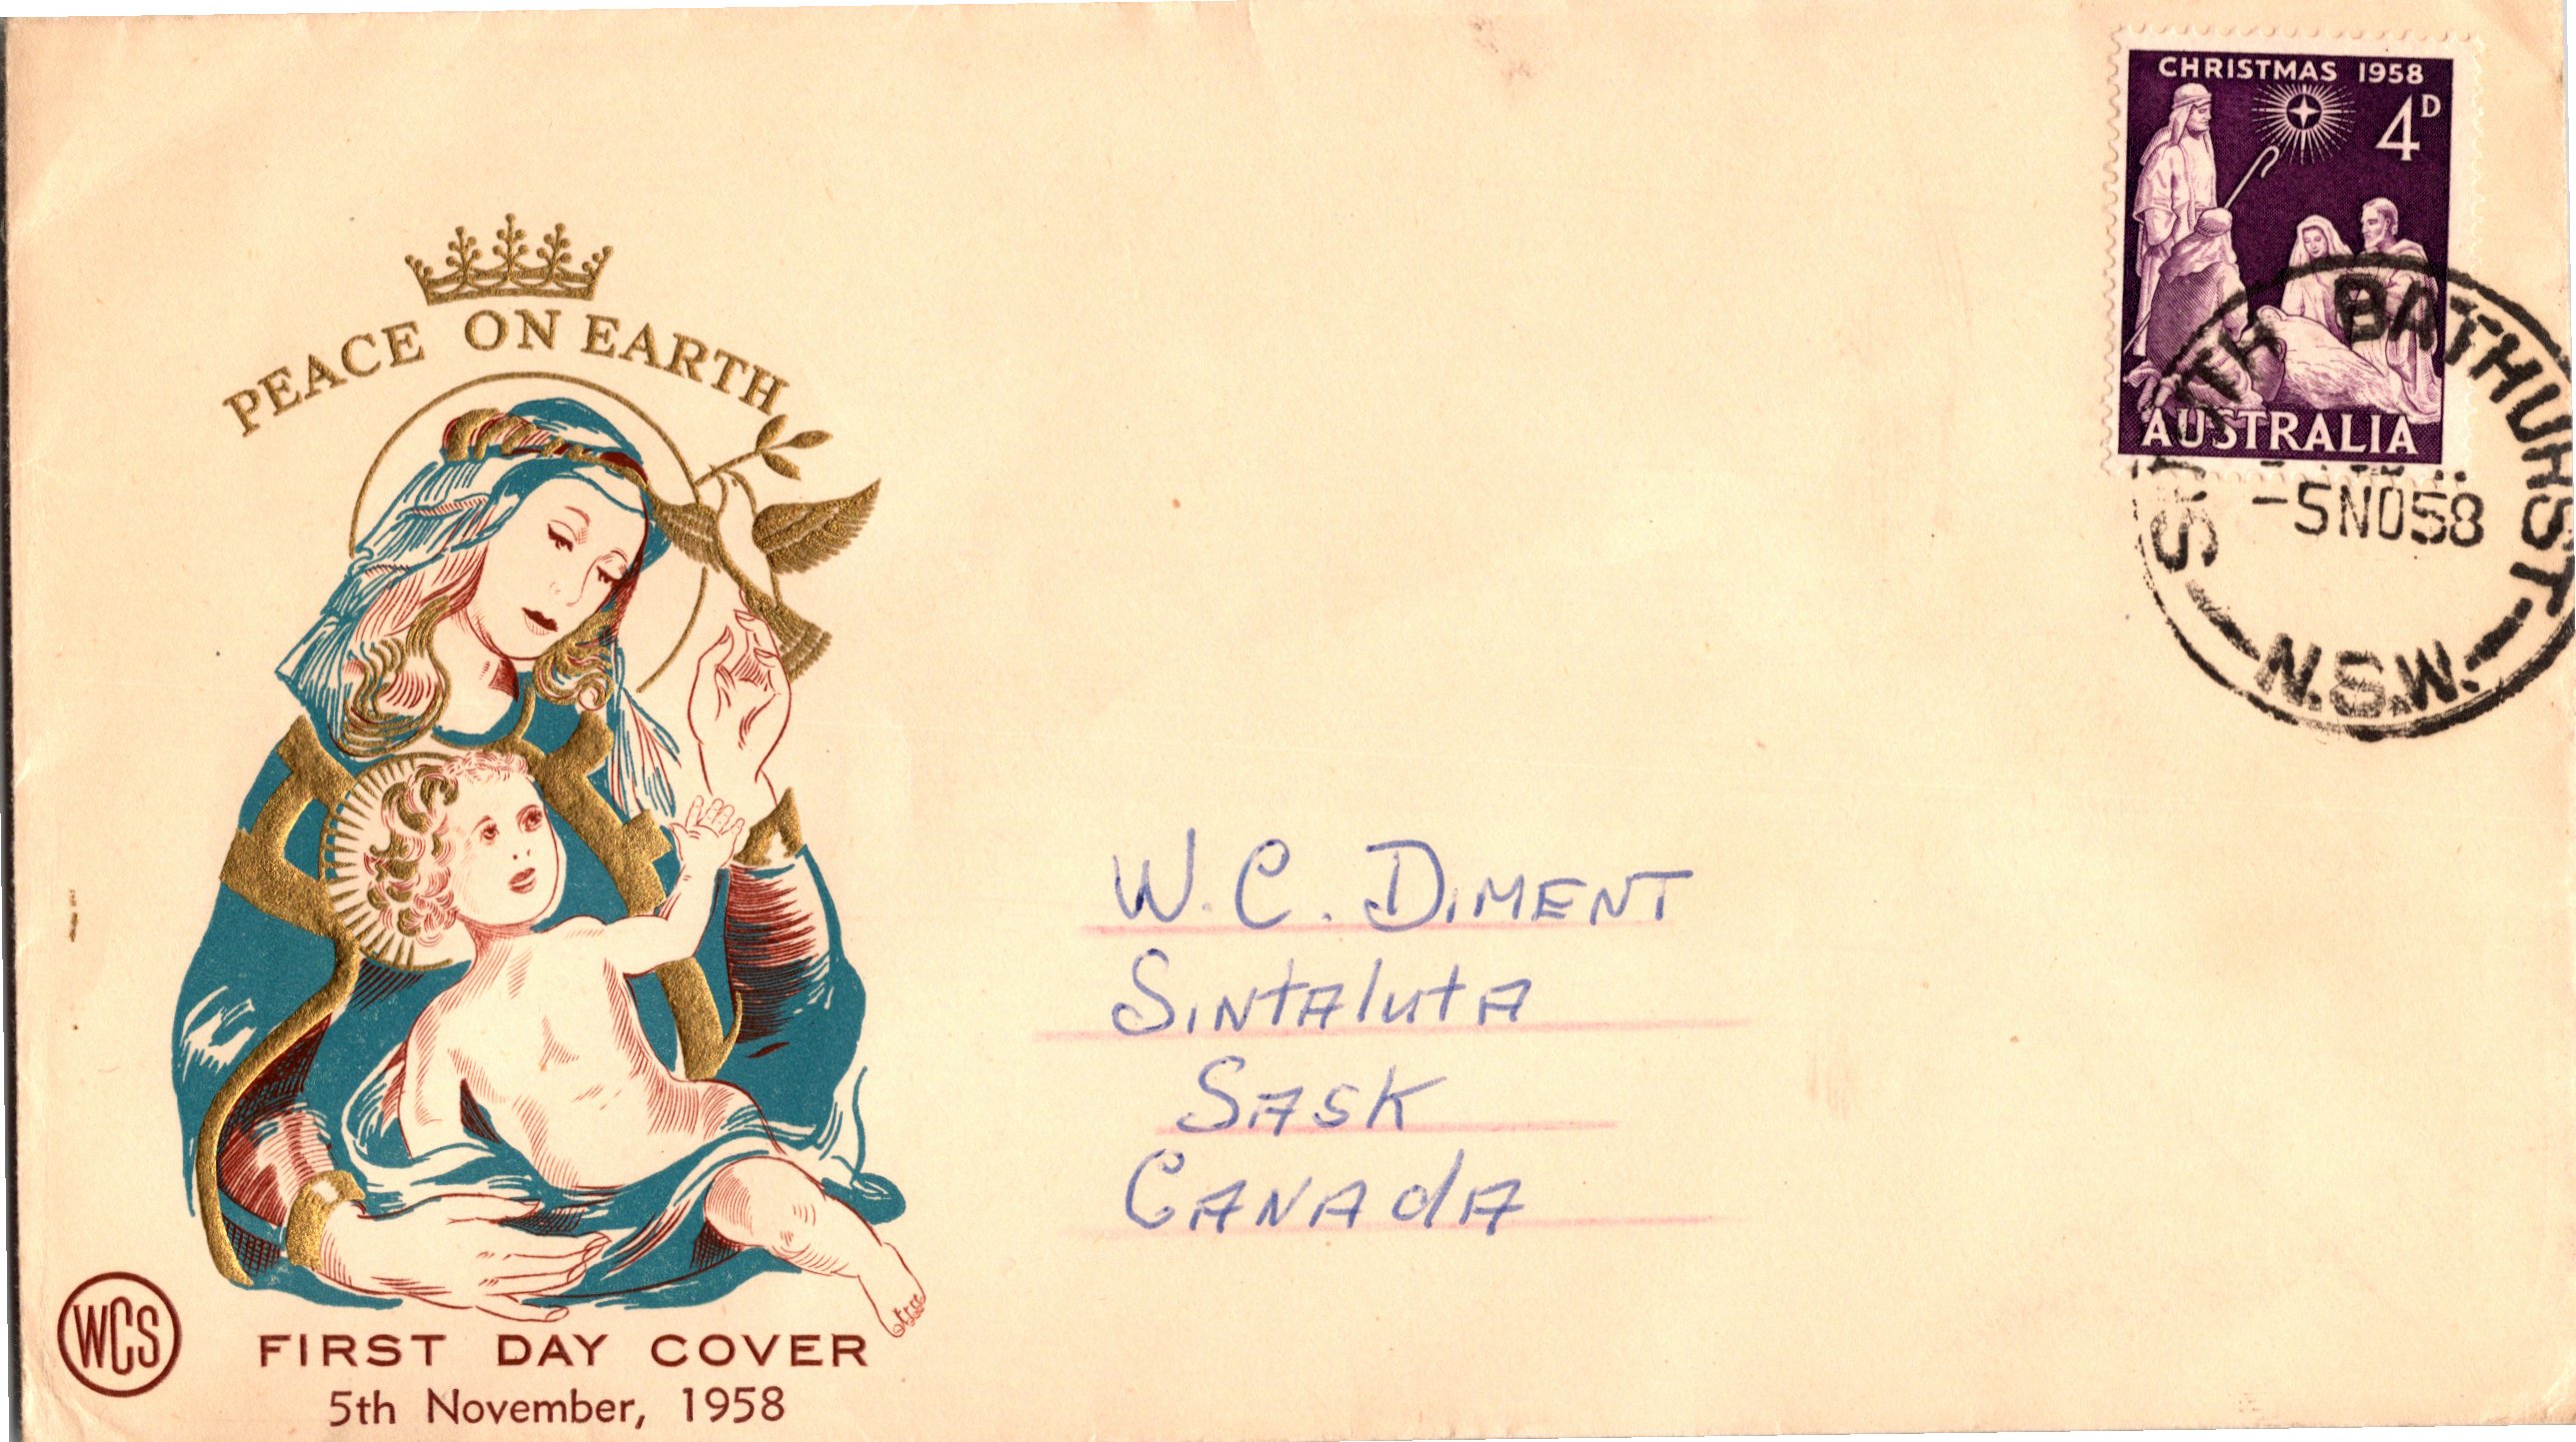 CHRISTMAS 1958
4D
AUSTRALIA
SOUTH BATHURST
-5NO58
N.S.W.
PEACE ON EARTH
W. C. DIMENT
SINtAlutA
SASK
CANAdA
WCS
FIRST DAY COVER
5th November, 1958